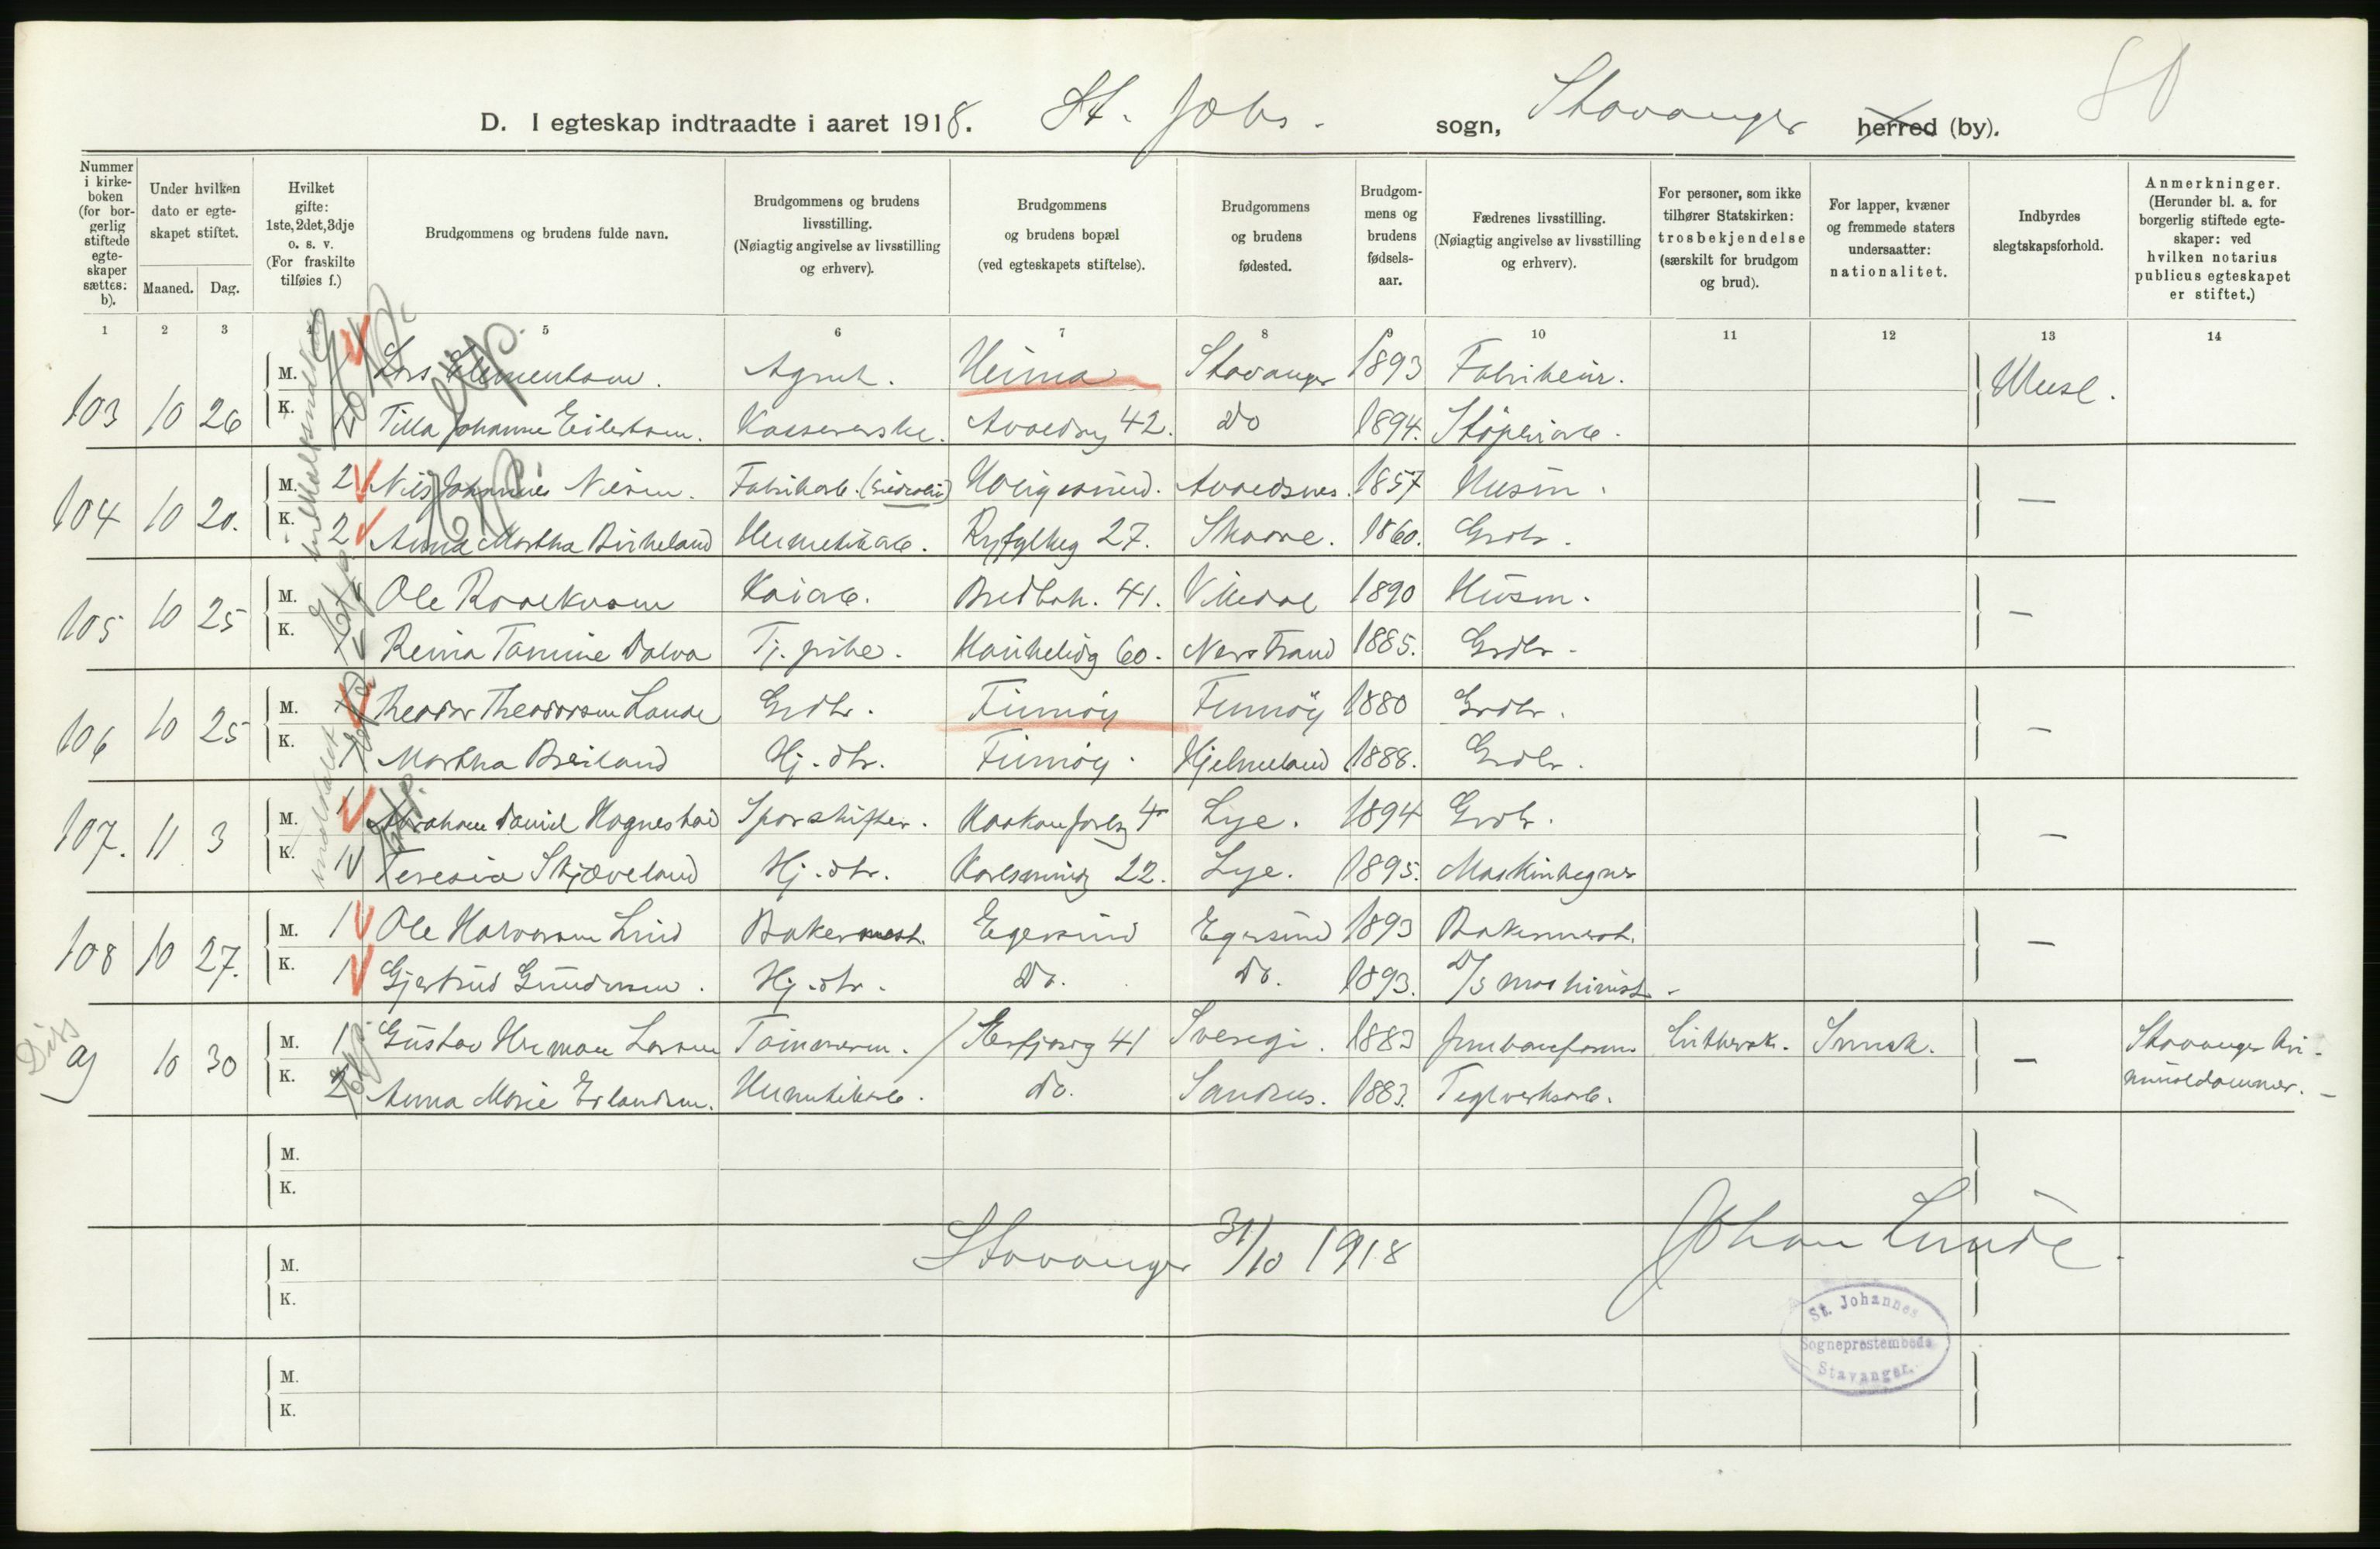 80
D. I egteskap indtraadte i aaret 1918. St. Johs. sogn, Stavanger herred (by).
Nummer i kirkeboken (for borgerlig stiftede egteskaper sættes: b).
Under hvilken dato er egteskapet stiftet.
Maaned. Dag.
Hvilket gifte: 1ste, 2det, 3dje o. s. v. (For fraskilte tilføies f.)
Brudgommens og brudens fulde navn.
Brudgommens og brudens livsstilling. (Nøiagtig angivelse av livsstilling og erhverv).
Brudgommens og brudens bopæl (ved egteskapets stiftelse).
Brudgommens og brudens fødested.
Brudgommens og brudens fødselsaar.
Fædrenes livsstilling. (Nøiagtig angivelse av livsstilling og erhverv).
For personer, som ikke tilhører Statskirken: trosbekjendelse (særskilt for brudgom og brud).
For lapper, kvæner og fremmede staters undersaatter: nationalitet.
Indbyrdes slegtskapsforhold.
Anmerkninger. (Herunder bl. a. for borgerlig stiftede egteskaper: ved hvilken notarius publicus egteskapet er stiftet.)
1 2 3 4 5 6 7 8 9 10 11 12 13 14
103 10 26
M. Lars Clementsen. Agent. Heima Stavanger 1893 Fabrikeier.
K. Tilla Johanne Eilertsen. Kassererske. Avaldsg 42. do 1894.
104 10 20.
M. 2 Nils Johannes Nilsen. Fabrikarb. Avaldsnes. 1857 Husm. —
K. 2 Anna Martha Birkeland Hermetikarb. Ryfylkeg 27. Skaare. 1860. Grdbr.
105 10 25
M. Ole Kaiarb. Bredbak. 41. Vikedal 1890 Husm. —
K. Tj. pike. Haukeligt 60. Nerstrand 1885. Grdbr.
106 10 25
M. Theodor Theodorsen Lande Grdbr. Finnøy Finnøy 1880 Grdbr. —
K. Martha Breiland Hj. dtr. Finnøy. Hjelmeland 1888. Grdbr.
107. 11 3
M. 1 Abraham Daniel Hognestad Sporskifter. Lye. 1894 Grdbr. —
K. 1 Teresia Skjæveland Hj. dtr. 22. Lye. 1895. Maskinhegner
108 10 27.
M. 1 Ole Halvorsen Lind Bakermest. Egersund Egersund 1893 Bakermest. —
K. 1 Gjertrud Gundersen. Hj. dtr. do. do. 1893. D/S maskinist.
Diss
10 30
M. 1 Gustav Herman Larsen Tømmerm. 41 Sverige. 1883 Luthersk. Svensk. — Stavanger kri-
K. 2 Anna Marie Erlandsen. Hermetikarb. do. Sandnes. 1883. Teglverksarb. minaldommer.
M.
K.
Stavanger 31/10 1918 Johan Lunde.
M.
K.
St. Johannes
Sogneprestembede
Stavanger.
M.
K.